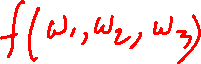 f(ω₁,ω₂,ω₃)